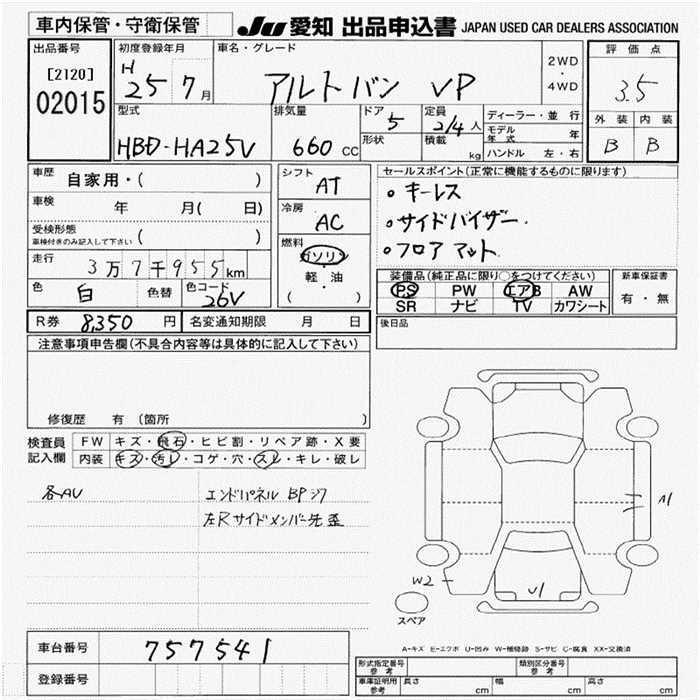 車内保管・守衛保管 JU 愛知 出品申込書 JAPAN USED CAR DEALERS ASSOCIATION
出品番号 初度登録年月 車名・グレード 評価点
[2120] H 2WD
02015 25 7月 アルトバン VP ・ 3.5
4WD
型式 排気量 ドア 5 定員 2/4人 ディーラー・並行 外装 内装
HBD-HA25V 660 CC 形状 積載 kg モデル年式 年 B B
ハンドル 左・右
車歴 自家用・( ) シフト AT セールスポイント(正常に機能するものに限ります)
車検 年 月( 日) 冷房 AC 。キーレス
受検形態 ( ) 。サイドバイザー.
車検付きのみ記入して下さい 燃料 ガソリン 。フロアマット.
走行 3万7千955km 軽・油
色 白 色替 色コード 26V ( )
装備品(純正品に限り○をつけてください) 新車保証書
PS PW エアB AW 有・無
SR ナビ TV カワシート
R券 8,350 円 名変通知期限 月 日 後日品
注意事項申告欄(不具合内容等は具体的に記入して下さい)
修復歴 有(箇所 )
検査員 FW キズ・飛石・ヒビ割・リペア跡・X要
記入欄 内装 キズ・汚レ・コゲ・穴・スレ・キレ・破レ
各AU エンドパネル BPジワ
左Rサイドメンバー先歪
A1
W2 U1
スペア
車台番号 757541
A-キズ E-エクボ U-凹み W-補修跡 S-サビ C-腐食 XX-交換済
登録番号
形式指定番号 参考 類別区分番号 参考
車庫証明用 参考 長さ cm 幅 cm 高さ cm